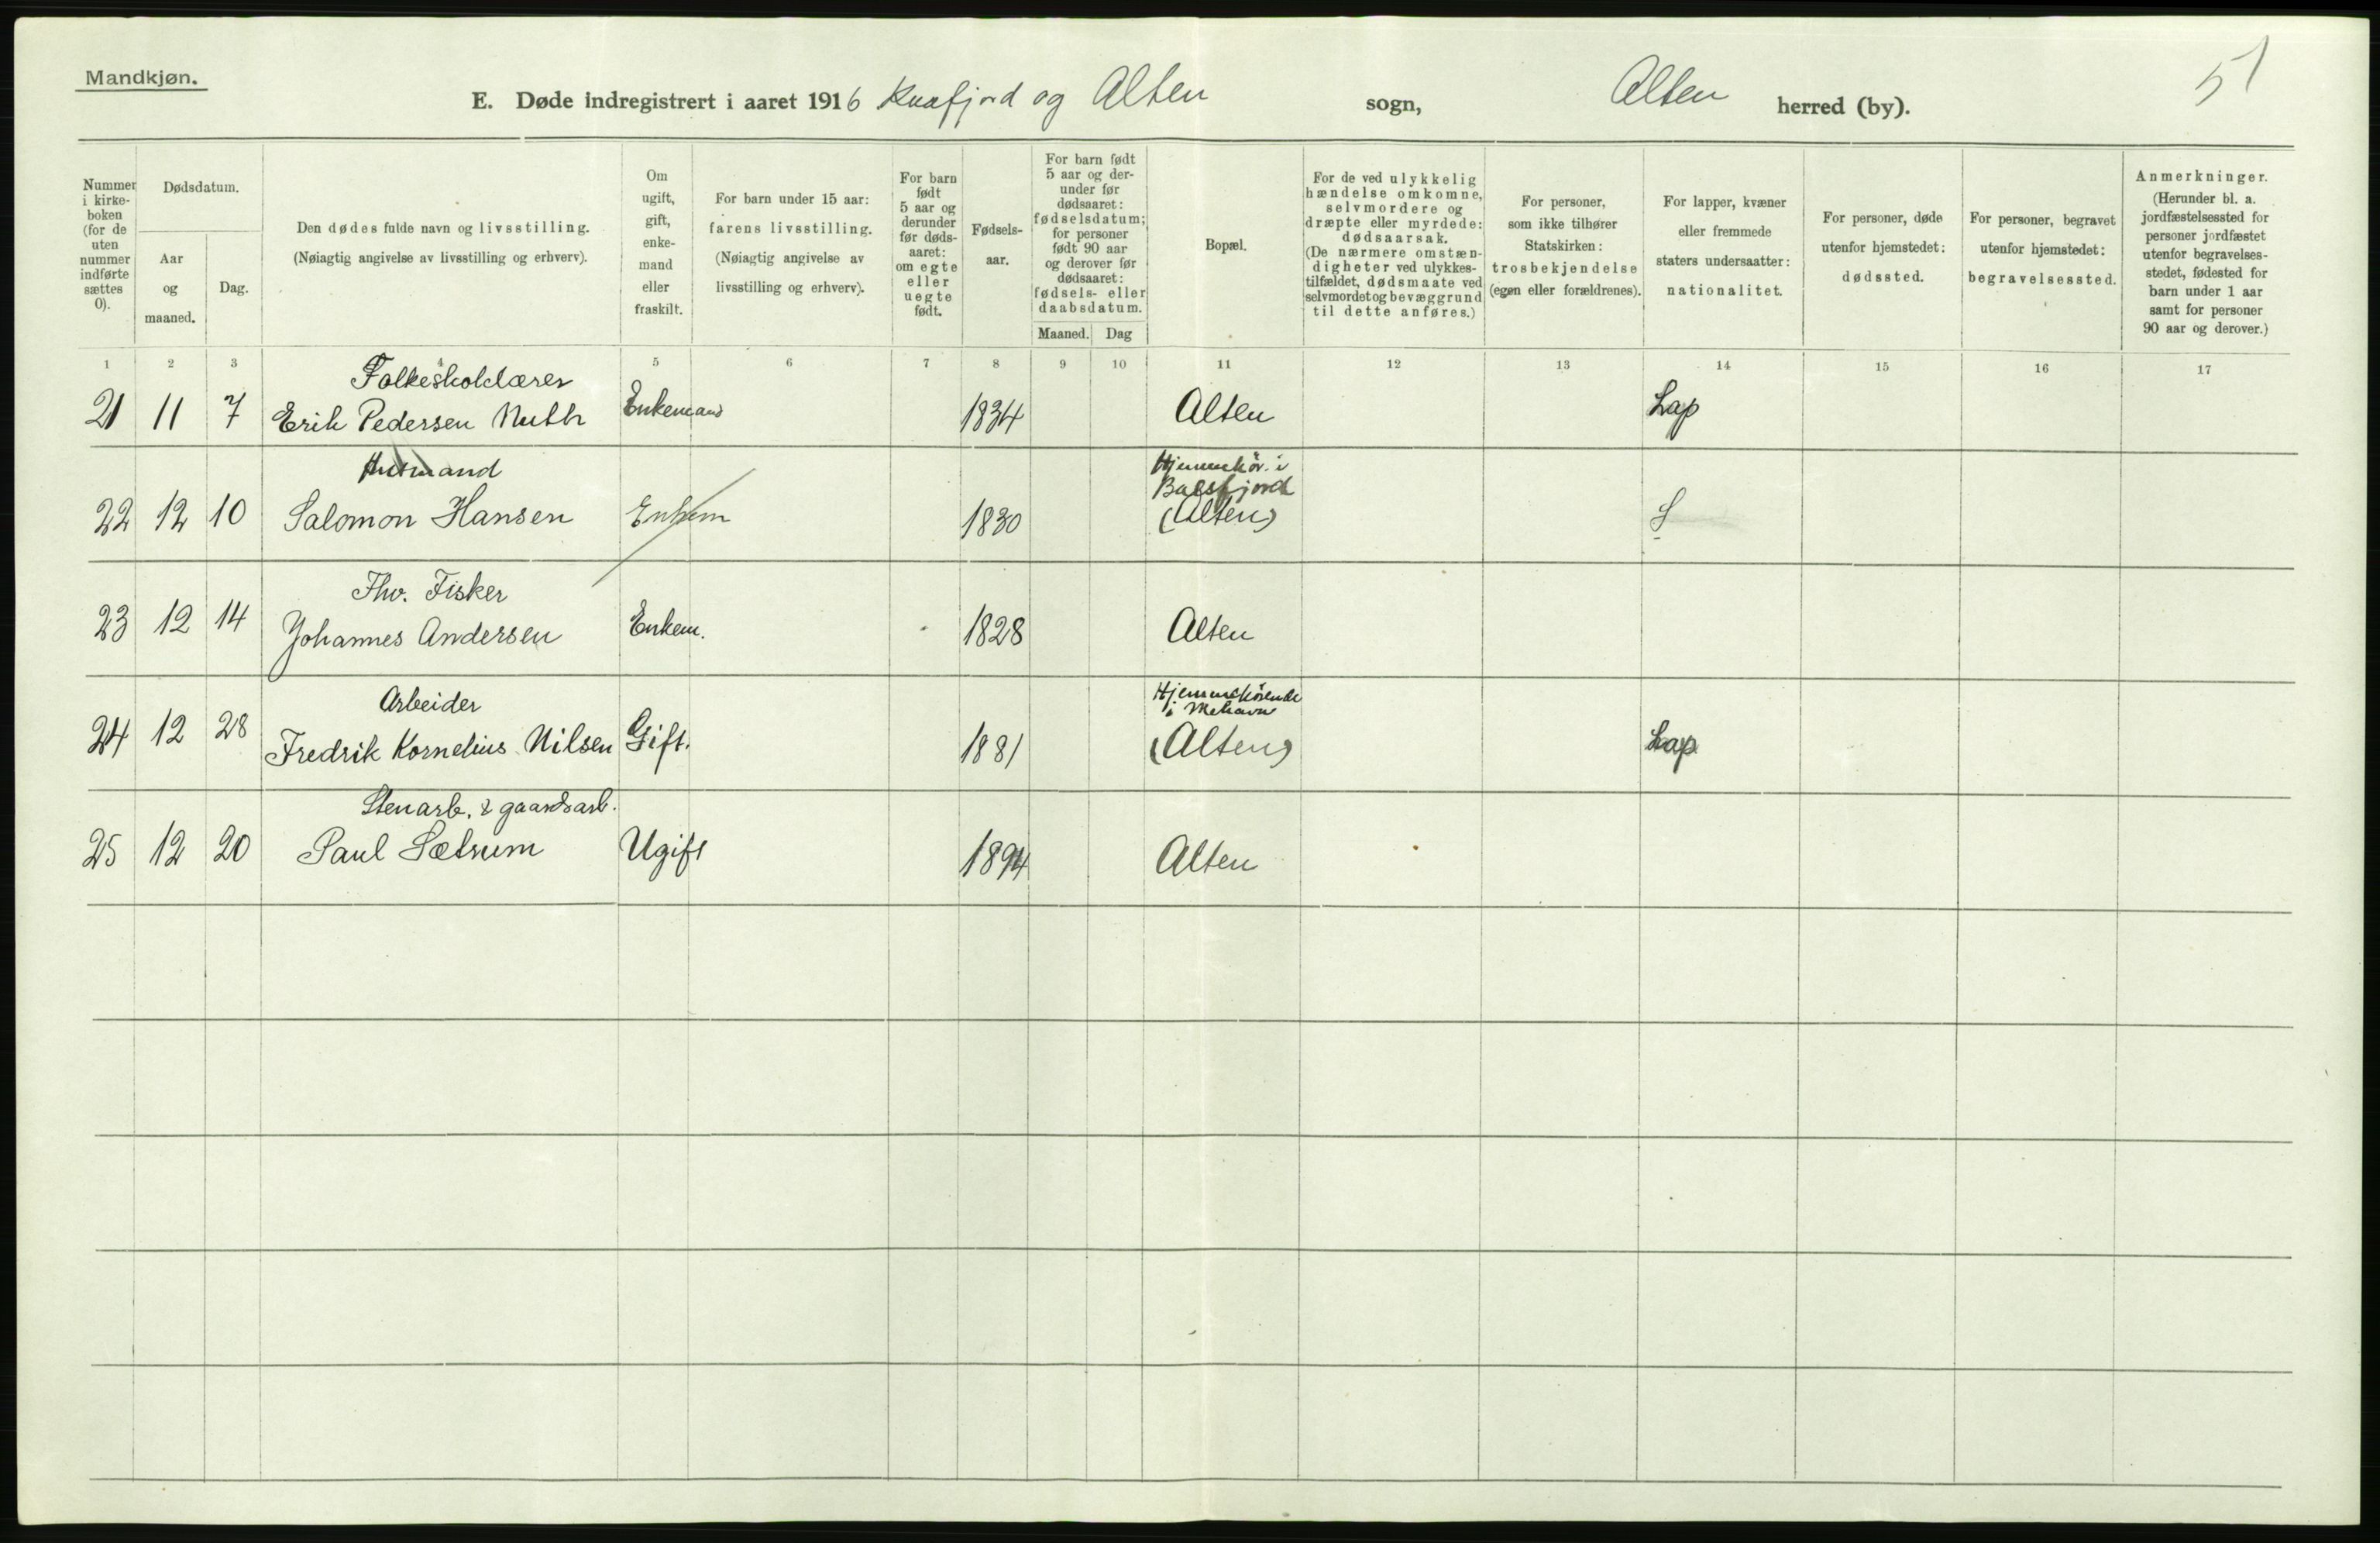 Mandkjøn.
51
E. Døde indregistrert i aaret 1916 og Alten sogn, Alten herred (by).
Nummer i kirke-boken (for de uten nummer indførte sættes 0).
Dødsdatum.
Aar og maaned.
Dag.
Den dødes fulde navn og livsstilling.
(Nøiagtig angivelse av livsstilling og erhverv).
Om ugift, gift, enke-mand eller fraskilt.
For barn under 15 aar: farens livsstilling.
(Nøiagtig angivelse av livsstilling og erhverv).
For barn født 5 aar og derunder før døds-aaret: om egte eller uegte født.
Fødsels-aar.
For barn født 5 aar og der-under før dødsaaret: fødselsdatum; for personer født 90 aar og derover før dødsaaret: fødsels- eller daabsdatum.
Maaned. Dag
Bopæl.
For de ved ulykkelig hændelse omkomne, selvmordere og dræpte eller myrdede: dødsaarsak.
(De nærmere omstæn-digheter ved ulykkes-tilfældet, dødsmaate ved selvmordet og bevæggrund til dette anføres.)
For personer, som ikke tilhører Statskirken: trosbekjendelse (egen eller forældrenes).
For lapper, kvæner eller fremmede staters undersaatter: nationalitet.
For personer, døde utenfor hjemstedet: dødssted.
For personer, begravet utenfor hjemstedet: begravelsessted.
Anmerkninger.
(Herunder bl. a. jordfæstelsessted for personer jordfæstet utenfor begravelses-stedet, fødested for barn under 1 aar samt for personer 90 aar og derover.)
1 2 3 4 5 6 7 8 9 10 11 12 13 14 15 16 17
Folkeskolelærer
21 11 7 Erik Pedersen Nutti Enkemand 1834 Alten Lap
Husmand Hjemmehör. i
Balsfjord
22 12 10 Salomon Hansen Enkem 1830 (Alten)
Fhv. Fisker
23 12 14 Johannes Andersen Enkem. 1828 Alten
Arbeider Hjemmehörende
i Mehavn
24 12 28 Fredrik Kornelius Nilsen Gift. 1881 (Alten) Lap
Stenarb. & gaardsarb.
25 12 20 Paul Sætrum Ugift 1894 Alten